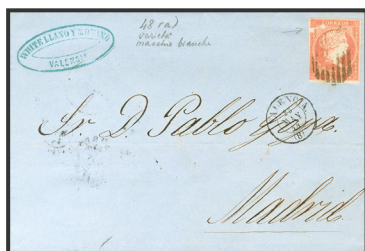 WHITE LLANO Y MORAND
VALENCIA
48 rad
varietà
macchie bianche
CORREOS
VALENCIA
(8)
Sr. D. Pablo
Madrid